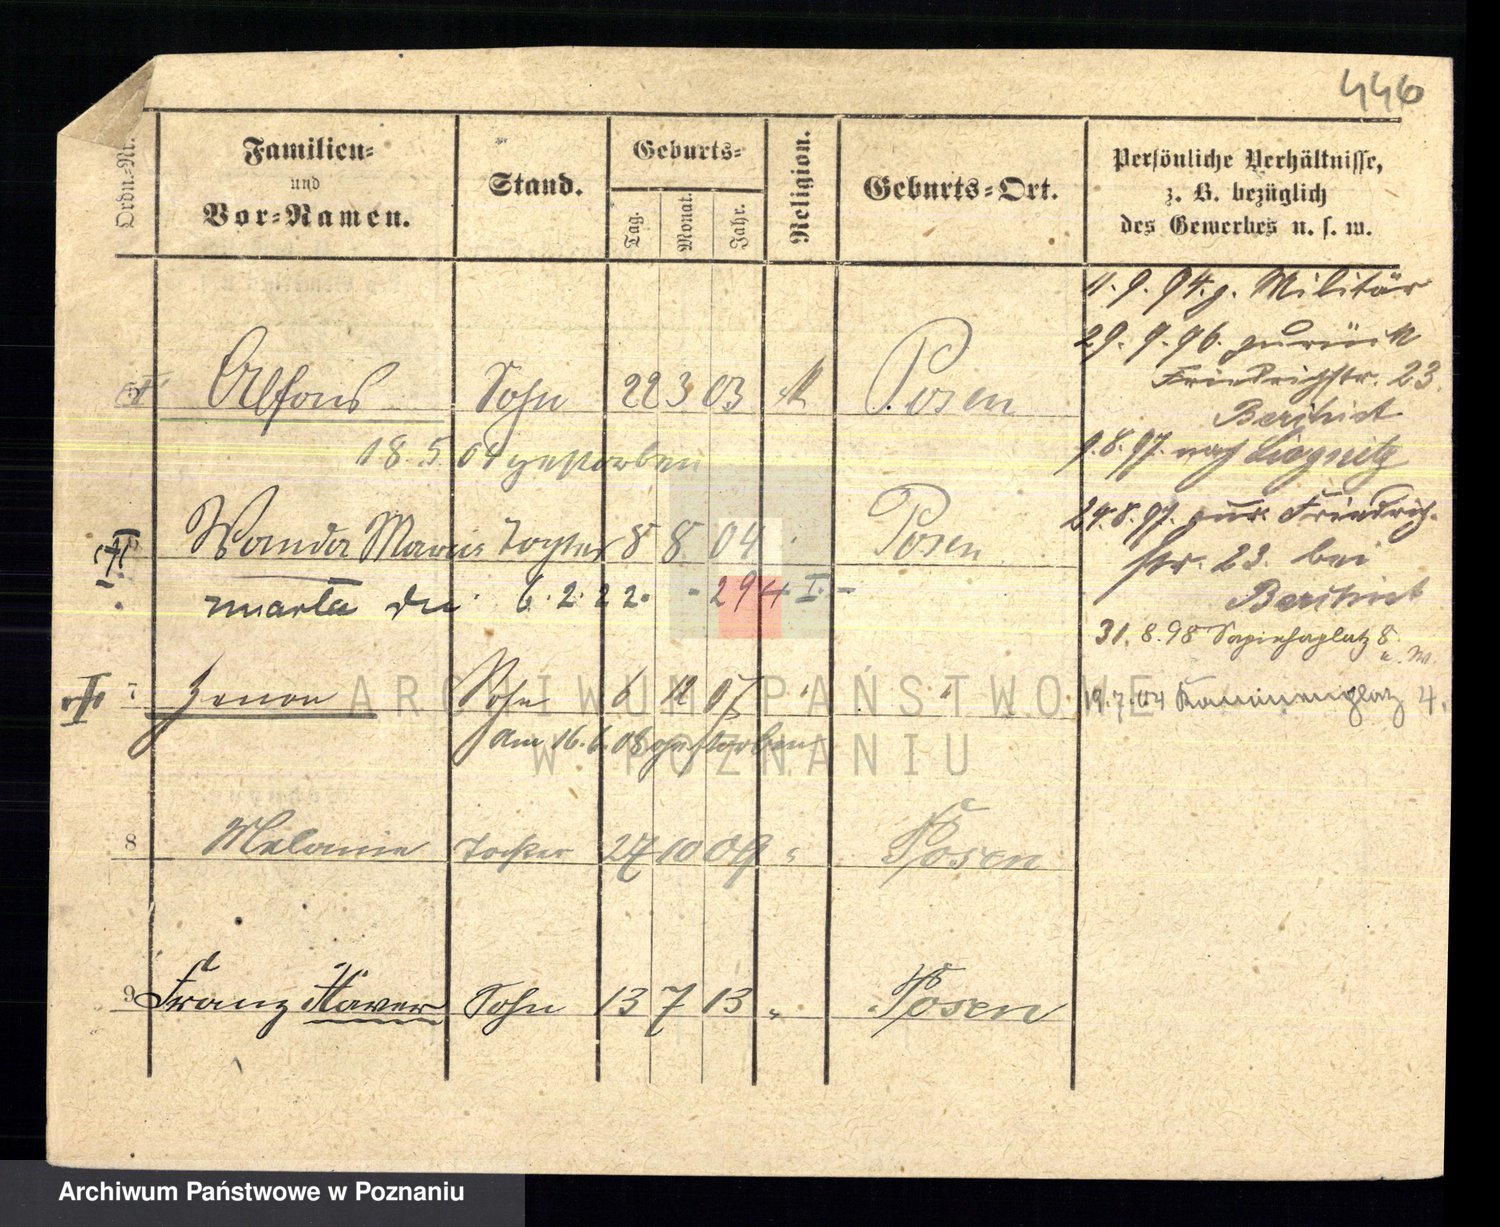 446
Ordn.-Nr.
Familien-
und
Vor-Namen.
Stand.
Geburts-
Tag.
Monat.
Jahr.
Religion.
Geburts-Ort.
Persönliche Verhältnisse,
z. B. bezüglich
des Gewerbes u. s. w.
11. 9. 94. z. Militär
29. 9. 96. zurück
Friedrichstr. 23.
Alfons Sohn 22 3 03 k Posen
9.8.97. nach Liegnitz
18. 5. 04 gestorben
24.8.97. zur. Friedrich-
Wanda Maria Tochter 8 8 04 Posen
str. 23. bei
zmarła dn. 6. 2. 22. - 294 I. -
31. 8. 98 Sapiehaplatz 8
7 Zenon Sohn 6 12 07 " "
19. 7. 04 4.
am 16. 6. 08 gestorben
8 Melanie Tochter 27 10 09 " Posen
9 Franz Xaver Sohn 13 7 13 " Posen
ARCHIWUM PAŃSTWOWE
W POZNANIU
Archiwum Państwowe w Poznaniu